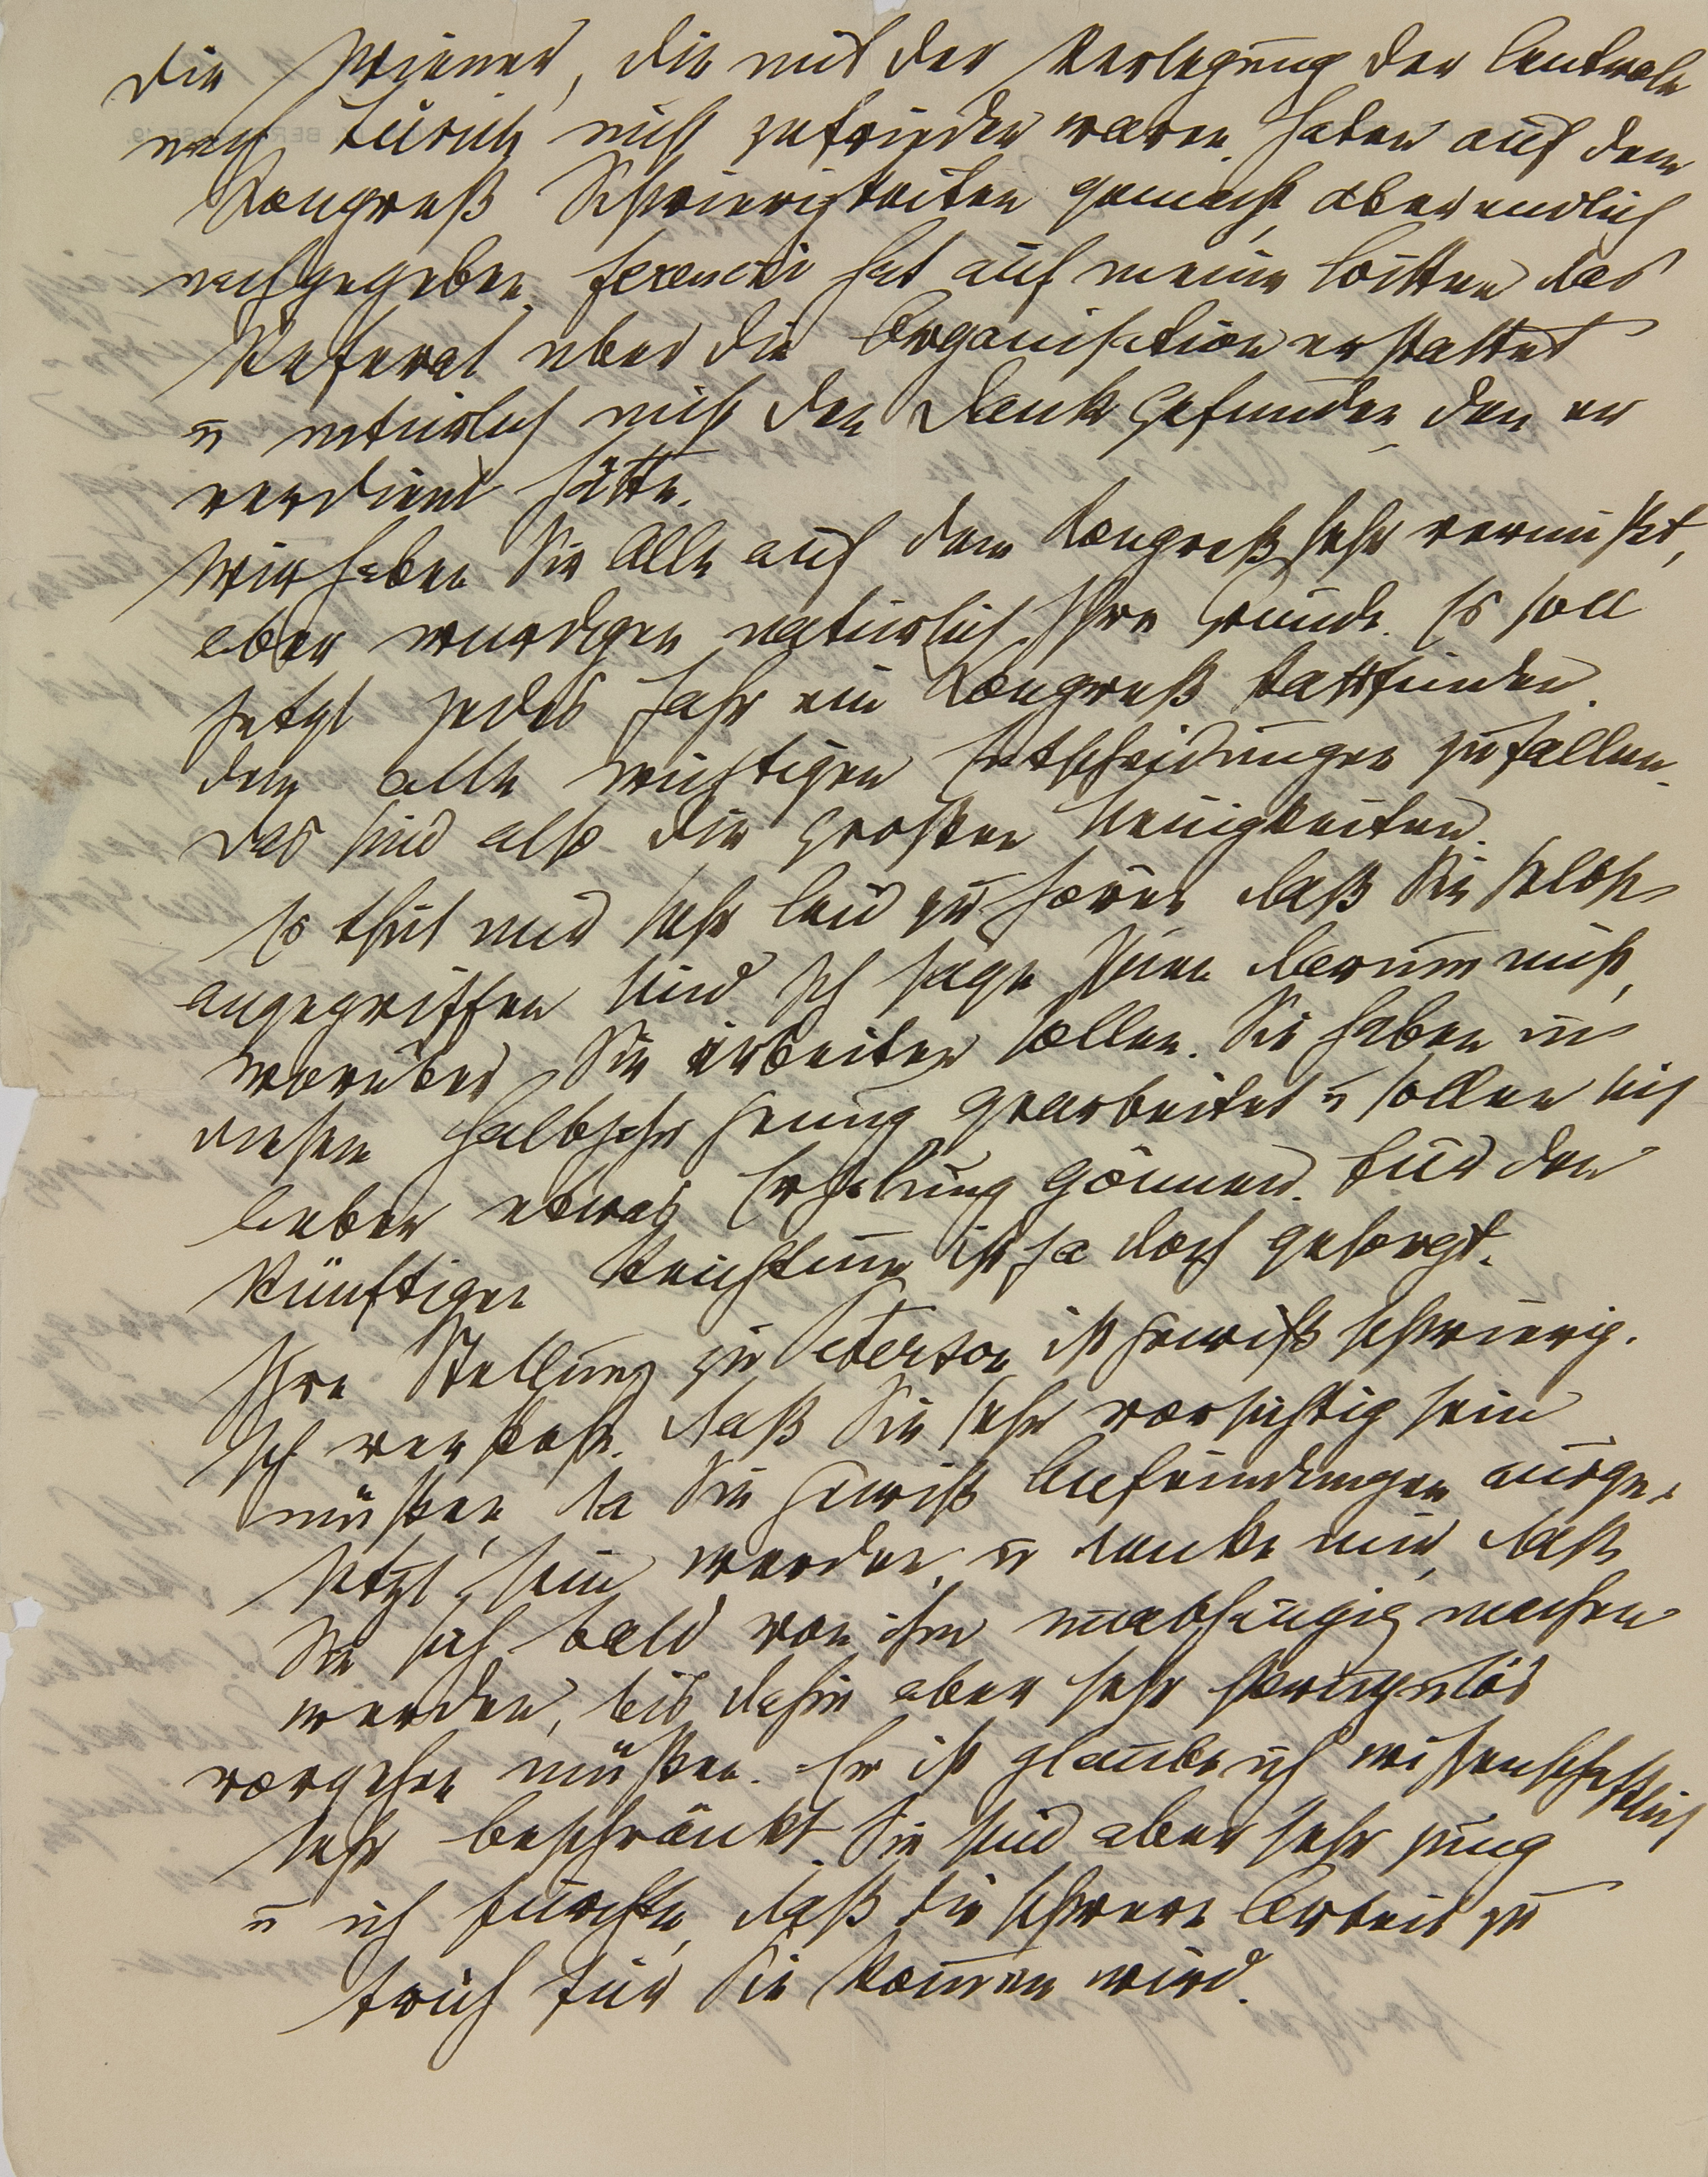 Die Wiener, die mit der Verlegung der Centrale
nach Zürich nicht zufrieden waren, haben auf dem
Kongreß Schwierigkeiten gemacht, aber endlich
nachgegeben. Ferenczi hat auf meine Bitten das
Referat über die Organisation erstattet
u natürlich nicht den Dank gefunden, den er
verdient hätte.
Wir haben Sie Alle auf dem Kongreß sehr vermißt,
aber würdigen natürlich Ihre Gründe. Es soll
jetzt jedes Jahr ein Kongreß stattfinden,
dem alle wichtigen Entscheidungen zufallen.
Das sind also die großen Neuigkeiten.
Es thut mir sehr leid zu hören, daß Sie selbst
angegriffen sind. Ich sage Ihnen darum nicht,
worüber Sie arbeiten sollen. Sie haben in
diesem Halbjahr genug gearbeitet u sollen sich
lieber etwas Erholung gönnen. Für den
künftigen Reichtum ist ja doch gesorgt.
Ihre Stellung zu Peterson ist gewiß schwierig.
Ich verstehe, daß Sie sehr vorsichtig sein
müßen, da Sie gewiß Anfeindungen ausge-
setzt sein werden, u denke mir, daß
Sie sich bald von ihm unabhängig machen
werden, bis dahin aber sehr skrupulös
vorgehen müßen. Er ist glaube ich wißenschaftlich
sehr beschränkt. Sie sind aber sehr jung
u ich fürchte, daß die schwere Arbeit zu
früh für Sie kommen wird.